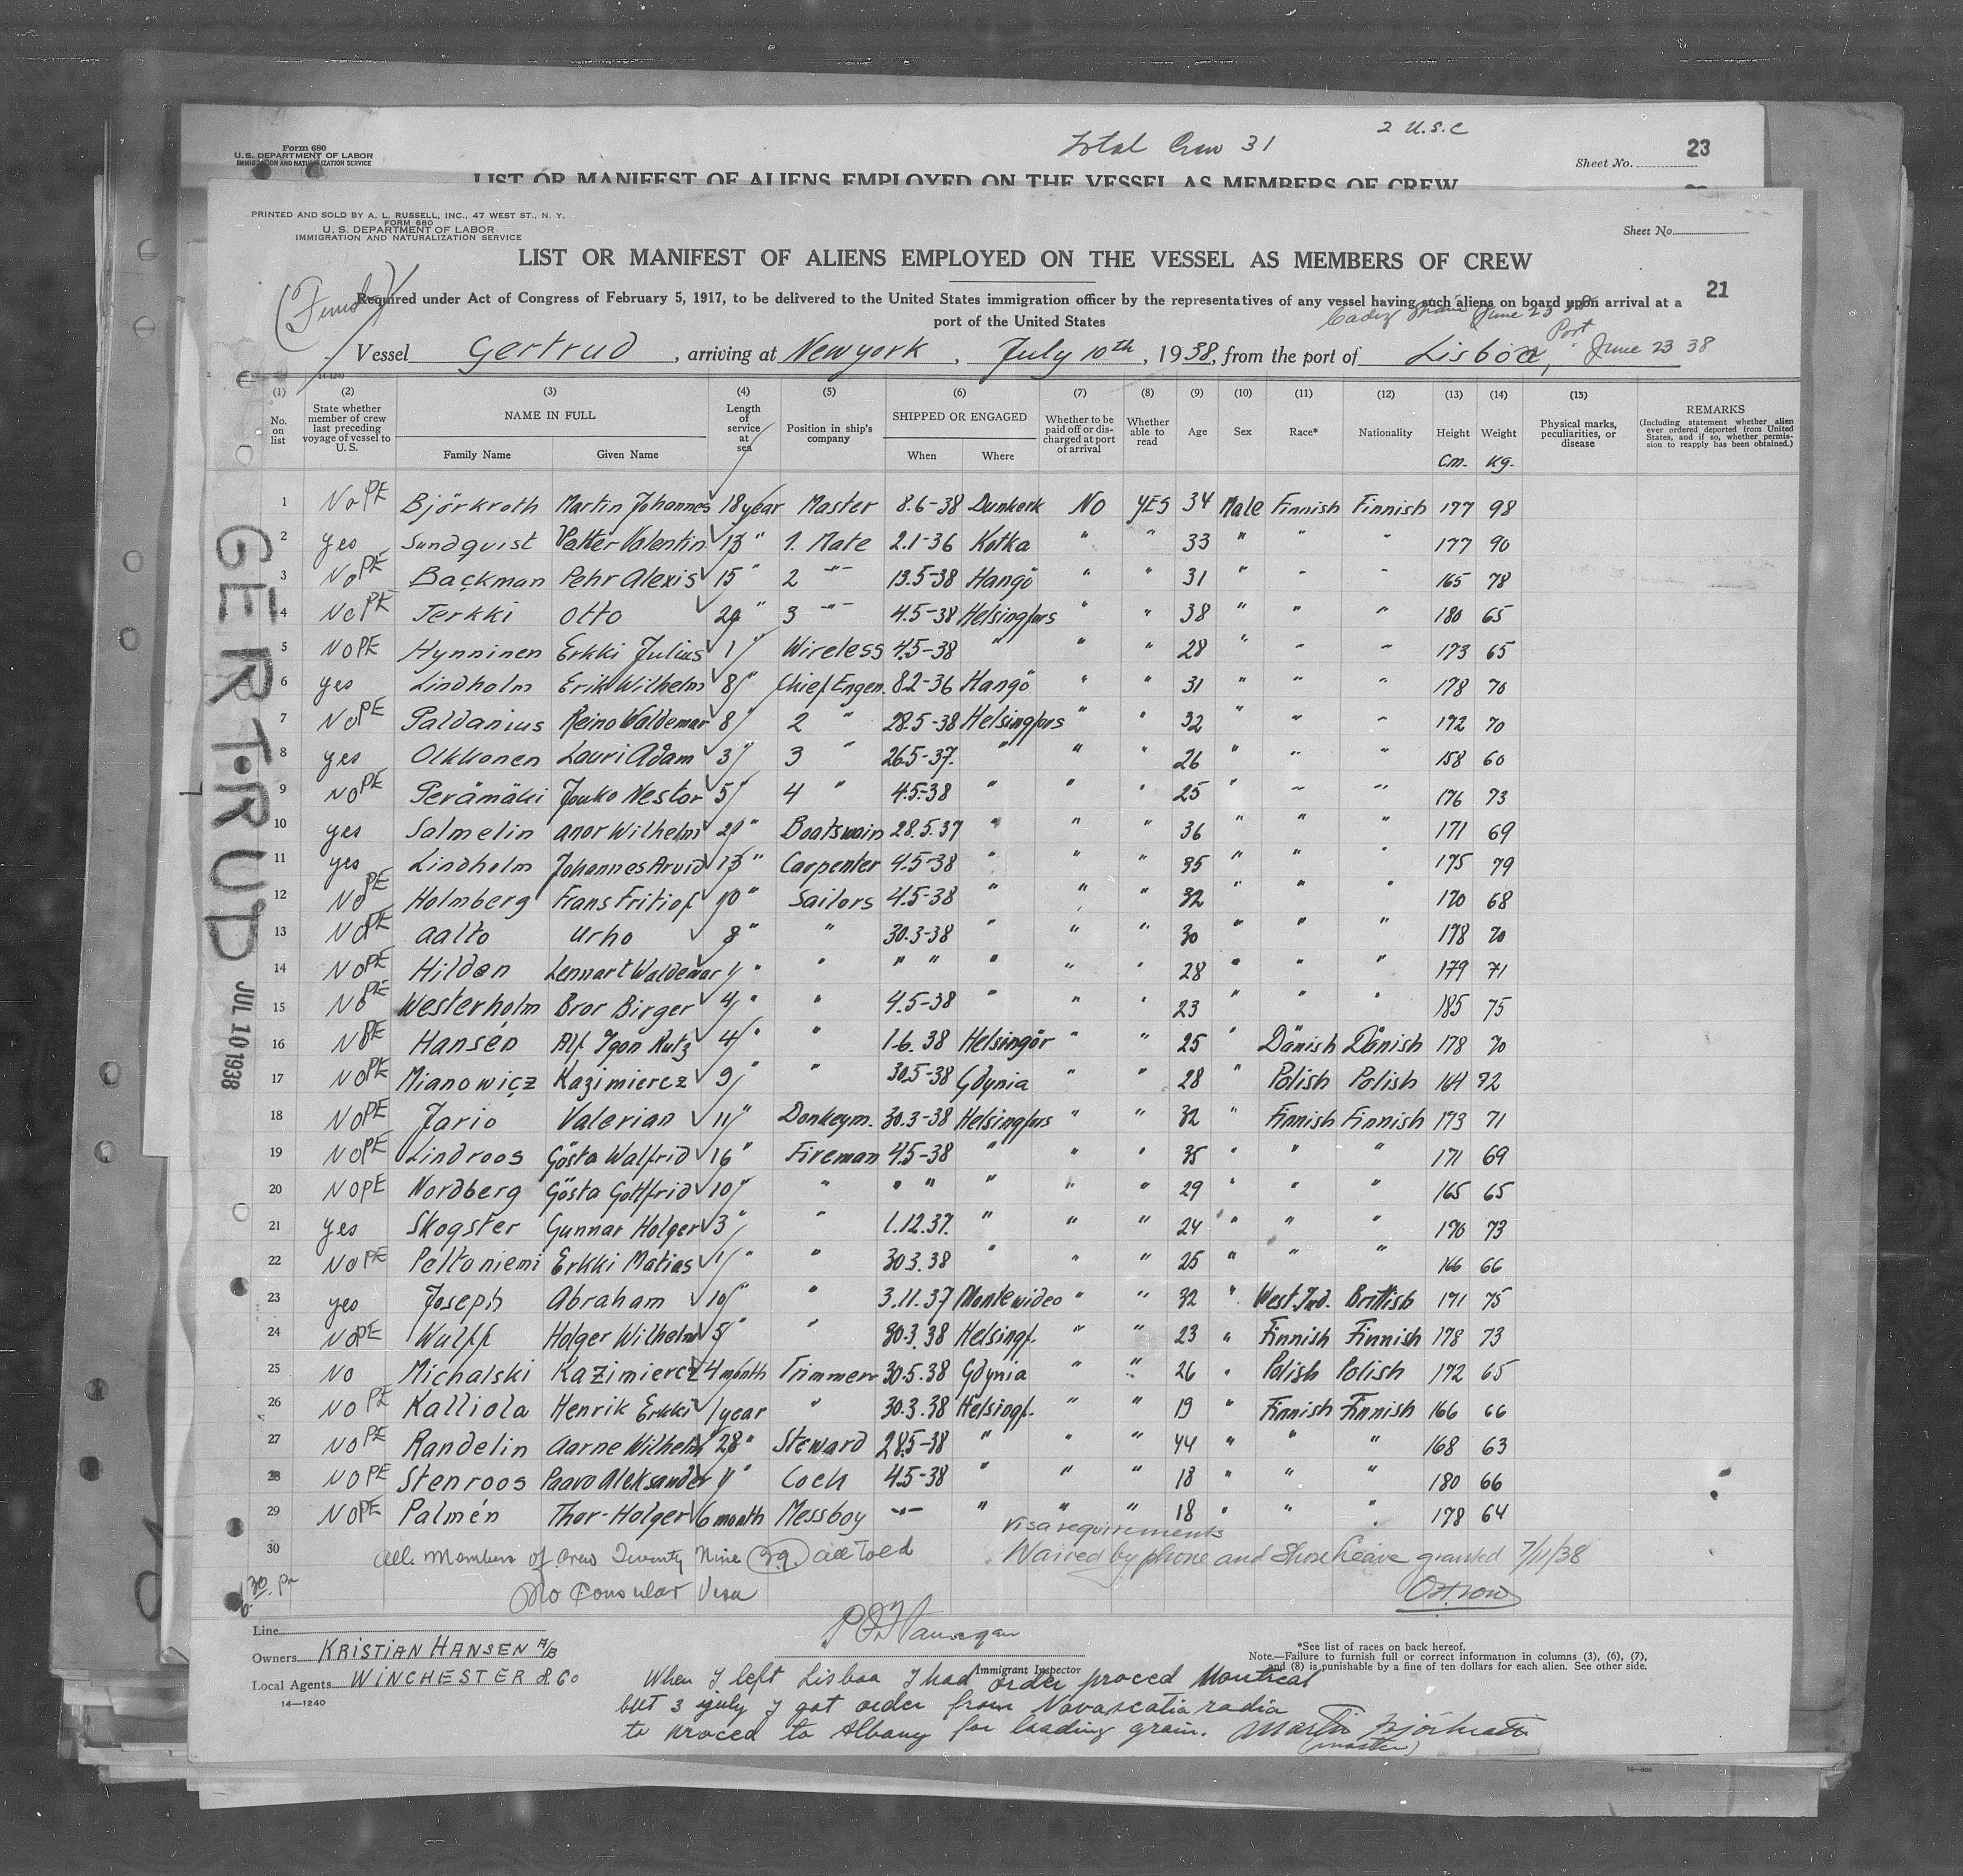 Form 680
U. S. DEPARTMENT OF LABOR
IMMIGRATION AND NATURALIZATION SERVICE
Total Crew 31
2 U.S.C
23
Sheet No.
LIST OR MANIFEST OF ALIENS EMPLOYED ON THE VESSEL AS MEMBERS OF CREW
PRINTED AND SOLD BY A. L. RUSSELL, INC., 47 WEST ST., N. Y.
FORM 680
U. S. DEPARTMENT OF LABOR
IMMIGRATION AND NATURALIZATION SERVICE
Sheet No.
LIST OR MANIFEST OF ALIENS EMPLOYED ON THE VESSEL AS MEMBERS OF CREW
21
Required under Act of Congress of February 5, 1917, to be delivered to the United States immigration officer by the representatives of any vessel having such aliens on board upon arrival at a
port of the United States
Cadiz Spain June 23 38
Vessel Gertrud, arriving at New york, July 10th, 1938, from the port of Lisboa, Port. June 23 38
14-1240
(1) No. on list
(2) State whether member of crew last preceding voyage of vessel to U. S.
(3) NAME IN FULL Family Name Given Name
(4) Length of service at sea
(5) Position in ship's company
(6) SHIPPED OR ENGAGED When Where
(7) Whether to be paid off or discharged at port of arrival
(8) Whether able to read
(9) Age
(10) Sex
(11) Race*
(12) Nationality
(13) Height cm.
(14) Weight kg.
(15) Physical marks, peculiarities, or disease
REMARKS (Including statement whether alien ever ordered deported from United States, and if so, whether permission to reapply has been obtained.)
1 No PE Björkroth Martin Johannes 18 year Master 8.6-38 Dunkerk No YES 34 Male Finnish Finnish 177 98
2 yes Sundqvist Valter Valentin 13 " 1. Mate 2.1-36 Kotka " " 33 " " " 177 90
3 No PE Backman Pehr Alexis 15 " 2 " 13.5-38 Hangö " " 31 " " " 165 78
4 No PE Terkki Otto 20 " 3 " 4.5-38 Helsingfors " " 38 " " " 180 65
5 No PE Hynninen Erkki Julius 1 " Wireless 4.5-38 " " " 28 " " " 173 65
6 yes Lindholm Erik Wilhelm 8 " Chief Engen. 8.2-36 Hangö " " 31 " " " 178 70
7 No PE Paldanius Reino Valdemar 8 " 2 " 28.5-38 Helsingfors " " 32 " " " 172 70
8 yes Olkkonen Lauri Adam 3 " 3 " 26.5-37. " " " 26 " " " 158 60
9 No PE Perämäki Jouko Nestor 5 " 4 " 4.5-38 " " " 25 " " " 176 73
10 yes Salmelin Anor Wilhelm 20 " Boatswain 28.5.37 " " " 36 " " " 171 69
11 yes Lindholm Johannes Arvid 13 " Carpenter 4.5-38 " " " 35 " " " 175 79
12 No PE Holmberg Frans Fritiof 10 " Sailors 4.5-38 " " " 32 " " " 170 68
13 No PE Aalto Urho 8 " " 30.3-38 " " " 30 " " " 178 70
14 No PE Hilden Lennart Waldemar " " " " " " " 28 " " " 179 71
15 No PE Westerholm Bror Birger 4 " " 4.5-38 " " " 23 " " " 185 75
16 No PE Hansén Alf Ygon Rutz 4 " " 1.6.38 Helsingör " " 25 " Danish Danish 178 70
17 No PE Mianowicz Kazimiercz 9 " " 30.5-38 Gdynia " " 28 " Polish Polish 164 72
18 No PE Jario Valerian 11 " Donkeym. 30.3-38 Helsingfors " " 32 " Finnish Finnish 173 71
19 No PE Lindroos Gösta Walfrid 16 " Fireman 4.5-38 " " " 35 " " " 171 69
20 No PE Nordberg Gösta Gottfrid 10 " " " " " " " 29 " " " 165 65
21 yes Skogster Gunnar Holger 3 " " 1.12.37. " " " 24 " " " 170 73
22 No PE Peltoniemi Erkki Matias 1 " " 30.3.38 " " " 25 " " " 166 66
23 yes Joseph Abraham 10 " " 3.11.37 Montevideo " " 32 " West.Ind. Brittish 171 75
24 No PE Wulff Holger Wilhelm 5 " " 30.3.38 Helsingf. " " 23 " Finnish Finnish 178 73
25 No Michalski Kazimiercz 4 month Trimmer 30.5.38 Gdynia " " 26 " Polish Polish 172 65
26 No PE Kalliola Henrik Erkki 1 year " 30.3.38 Helsingf. " " 19 " Finnish Finnish 166 66
27 No PE Randelin Aarne Wilhelm 28 " Steward 28.5-38 " " " 44 " " " 168 63
28 No PE Stenroos Paavo Aleksander 1 " Coch 4.5-38 " " " 18 " " " 180 66
29 No PE Palmén Thor-Holger 6 month Messboy " " " " 18 " " " 178 64
30 All members of crew Twenty Nine (29) all told
visa requirements
Waived by phone and Shore Leave granted 7/11/38
No Consular Visa
GERTRUD
JUL 10 1938
Line
Owners KRISTIAN HANSEN A/B
Local Agents WINCHESTER & Co
14—1240
Immigrant Inspector
*See list of races on back hereof.
Note.—Failure to furnish full or correct information in columns (3), (6), (7), and (8) is punishable by a fine of ten dollars for each alien. See other side.
When I left Lisboa I had order proced Montreal
but 3 july I got order from Novascatia radia
to proced to Albany for loading grain. Martin Björkroth
(master)